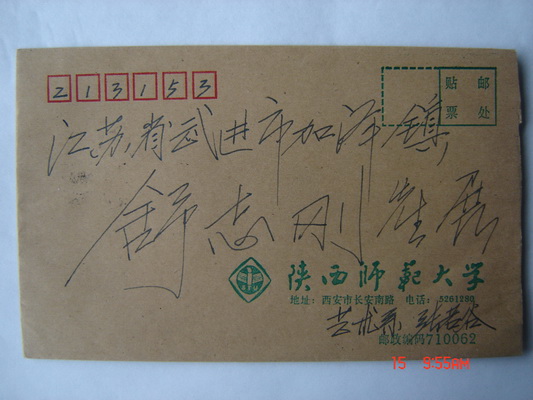 213153
贴 邮
票 处
江苏省武进市加泽镇
舒志刚 崔展
陕西师范大学
地址：西安市长安南路 电话：5261280
艺术系 张
邮政编码710062
15 9:55AM